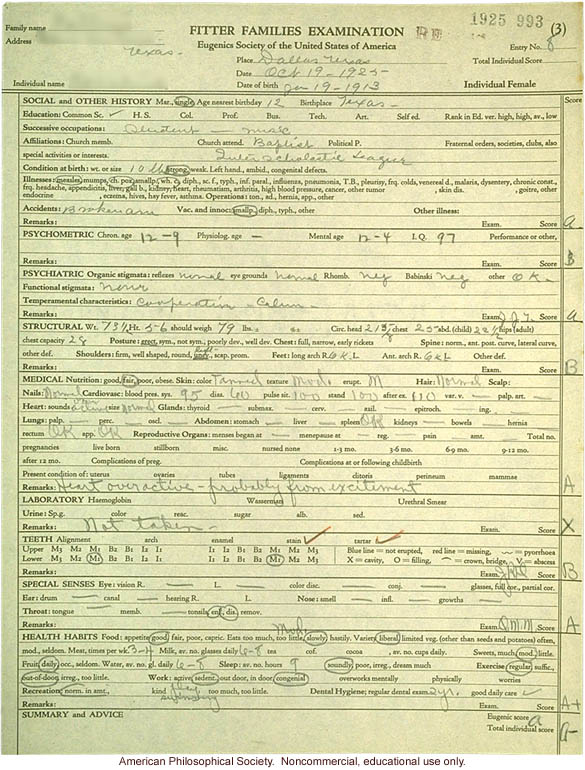 1925 993 (3)
Family name FITTER FAMILIES EXAMINATION
Address Eugenics Society of the United States of America Entry No. 8
Texas - Place Dallas Texas Total Individual Score
Date Oct 19 - 1925
Individual name Date of birth Jan 19 - 1913 Individual Female
SOCIAL and OTHER HISTORY Mar., single, Age nearest birthday 12 Birthplace Texas - Score
Education: Common Sc. ✓ H. S. Col. Prof. Bus. Tech. Art. Self ed. Rank in Ed. ver. high, high, av., low
Successive occupations: Student - music
Affiliations: Church memb. Church attend. Baptist Political P. Fraternal orders, societies, clubs, also
special activities or interests. Inter Scholastic League
Condition at birth: wt. or size 10 lb strong, weak. Left hand, ambid., congenital defects.
Illnesses: measles, mumps, ch. pox, smallp., wh. c., diph., sc. f., typh., inf. paral., influenza, pneumonia, T.B., pleurisy, frq. colds, venereal d., malaria, dysentery, chronic const.,
frq. headache, appendicitis, liver, gall b., kidney, heart, rheumatism, arthritis, high blood pressure, cancer, other tumor , skin dis. , goitre, other
endocrine , eczema, hives, hay fever, asthma. Operations: ton., ad., hernia, app., other
Accidents: Broken arm Vac. and innoc: smallp., diph., typh., other Other illness:
Remarks: Exam. Score A-
PSYCHOMETRIC Chron. age 12-9 Physiolog. age - Mental age 12-4 I.Q. 97 Performance or other,
Remarks: Exam. Score B
PSYCHIATRIC Organic stigmata: reflexes normal eye grounds normal Rhomb. neg Babinski neg other O.K.-
Functional stigmata: None
Temperamental characteristics: Cooperation - Calm -
Remarks: Exam. Score a
STRUCTURAL Wt. 73½ Ht. 5-6 should weigh 79 lbs. Circ. head 21 chest 25 abd. (child) 22½ hips (adult)
chest capacity 28 Posture: erect, sym., not sym., poorly dev., well dev. Chest: full, narrow, early rickets Spine: norm., ant. post. curve, lateral curve,
other def. Shoulders: firm, well shaped, round, unev., scap. prom. Feet: long arch R & L Ant. arch R & L Other def.
Remarks: Exam. Score B
MEDICAL Nutrition: good, fair, poor, obese. Skin: color Tanned texture Mod. erupt. M Hair: Normal Scalp:
Nails: Normal Cardiovasc: blood pres. sys. 95 dias. 60 pulse sit. 100 stand 100 after ex. 110 var. v. - palp. art. -
Heart: sounds active size normal Glands: thyroid - submax. - cerv. - axil. - epitroch. - ing. -
Lungs: palp. - perc. - oscl. - Abdomen: stomach - liver - spleen OK kidneys - bowels - hernia
rectum OK app. OK Reproductive Organs: menses began at - menopause at - reg. pain amt. Total no.
pregnancies live born stillborn misc. nursed none 1-3 mo. 3-6 mo. 6-9 mo. 9-12 mo.
after 12 mo. Complications of preg. Complications at or following childbirth
Present condition of: uterus ovaries tubes ligaments clitoris perineum mammae
Remarks: Heart overactive - probably from excitement Exam. Score A
LABORATORY Haemoglobin Wasserman Urethral Smear
Urine: Sp.g. color reac. sugar alb. sed.
Remarks: Not taken - Exam. Score X
TEETH Alignment arch enamel stain ✓ tartar ✓
Upper M3 M2 M1 B2 B1 C I2 I1 I1 I2 C B1 B2 M1 M2 M3 Blue line = not erupted, red line = missing, = pyorrhoea
Lower M3 M2 M1 B2 B1 C I2 I1 I1 I2 C B1 B2 M1 M2 M3 X = cavity, O = filling, = crown, bridge, V = abscess
Remarks: Exam. Score B
SPECIAL SENSES Eye: vision R. - L. - color disc. - conj. - glasses, full cor., partial cor.
Ear: drum - canal - hearing R. - L. Nose: smell - infl. - growths -
Throat: tongue - memb. - tonsils, enl., dis., remov.
Remarks: Exam. Score A
HEALTH HABITS Food: appetite good, fair, poor, capric. Eats too much, too little, slowly, hastily. Variety liberal, limited veg. (other than seeds and potatoes) often,
mod., seldom. Meat, times per wk. 3-4 Milk, av. no. glasses daily 6-8 tea cof. cocoa , av. no. cups daily. Sweets, much, mod., little.
Fruit, daily, occ., seldom. Water, av. no. gl. daily 6-8 Sleep: av. no. hours 9 soundly, poor, irreg., dream much Exercise regular, suffic.,
out-of-door, irreg., too little. Work: active, sedent., out door, in door, congenial overworks mentally physically worries
Recreation: norm. in amt., kind play swimming too much, too little. Dental Hygiene; regular dental exam. 2 yr. good daily care ✓
Remarks: Exam. Score A+
SUMMARY AND ADVICE Eugenic score a
Total individual score A-
American Philosophical Society. Noncommercial, educational use only.